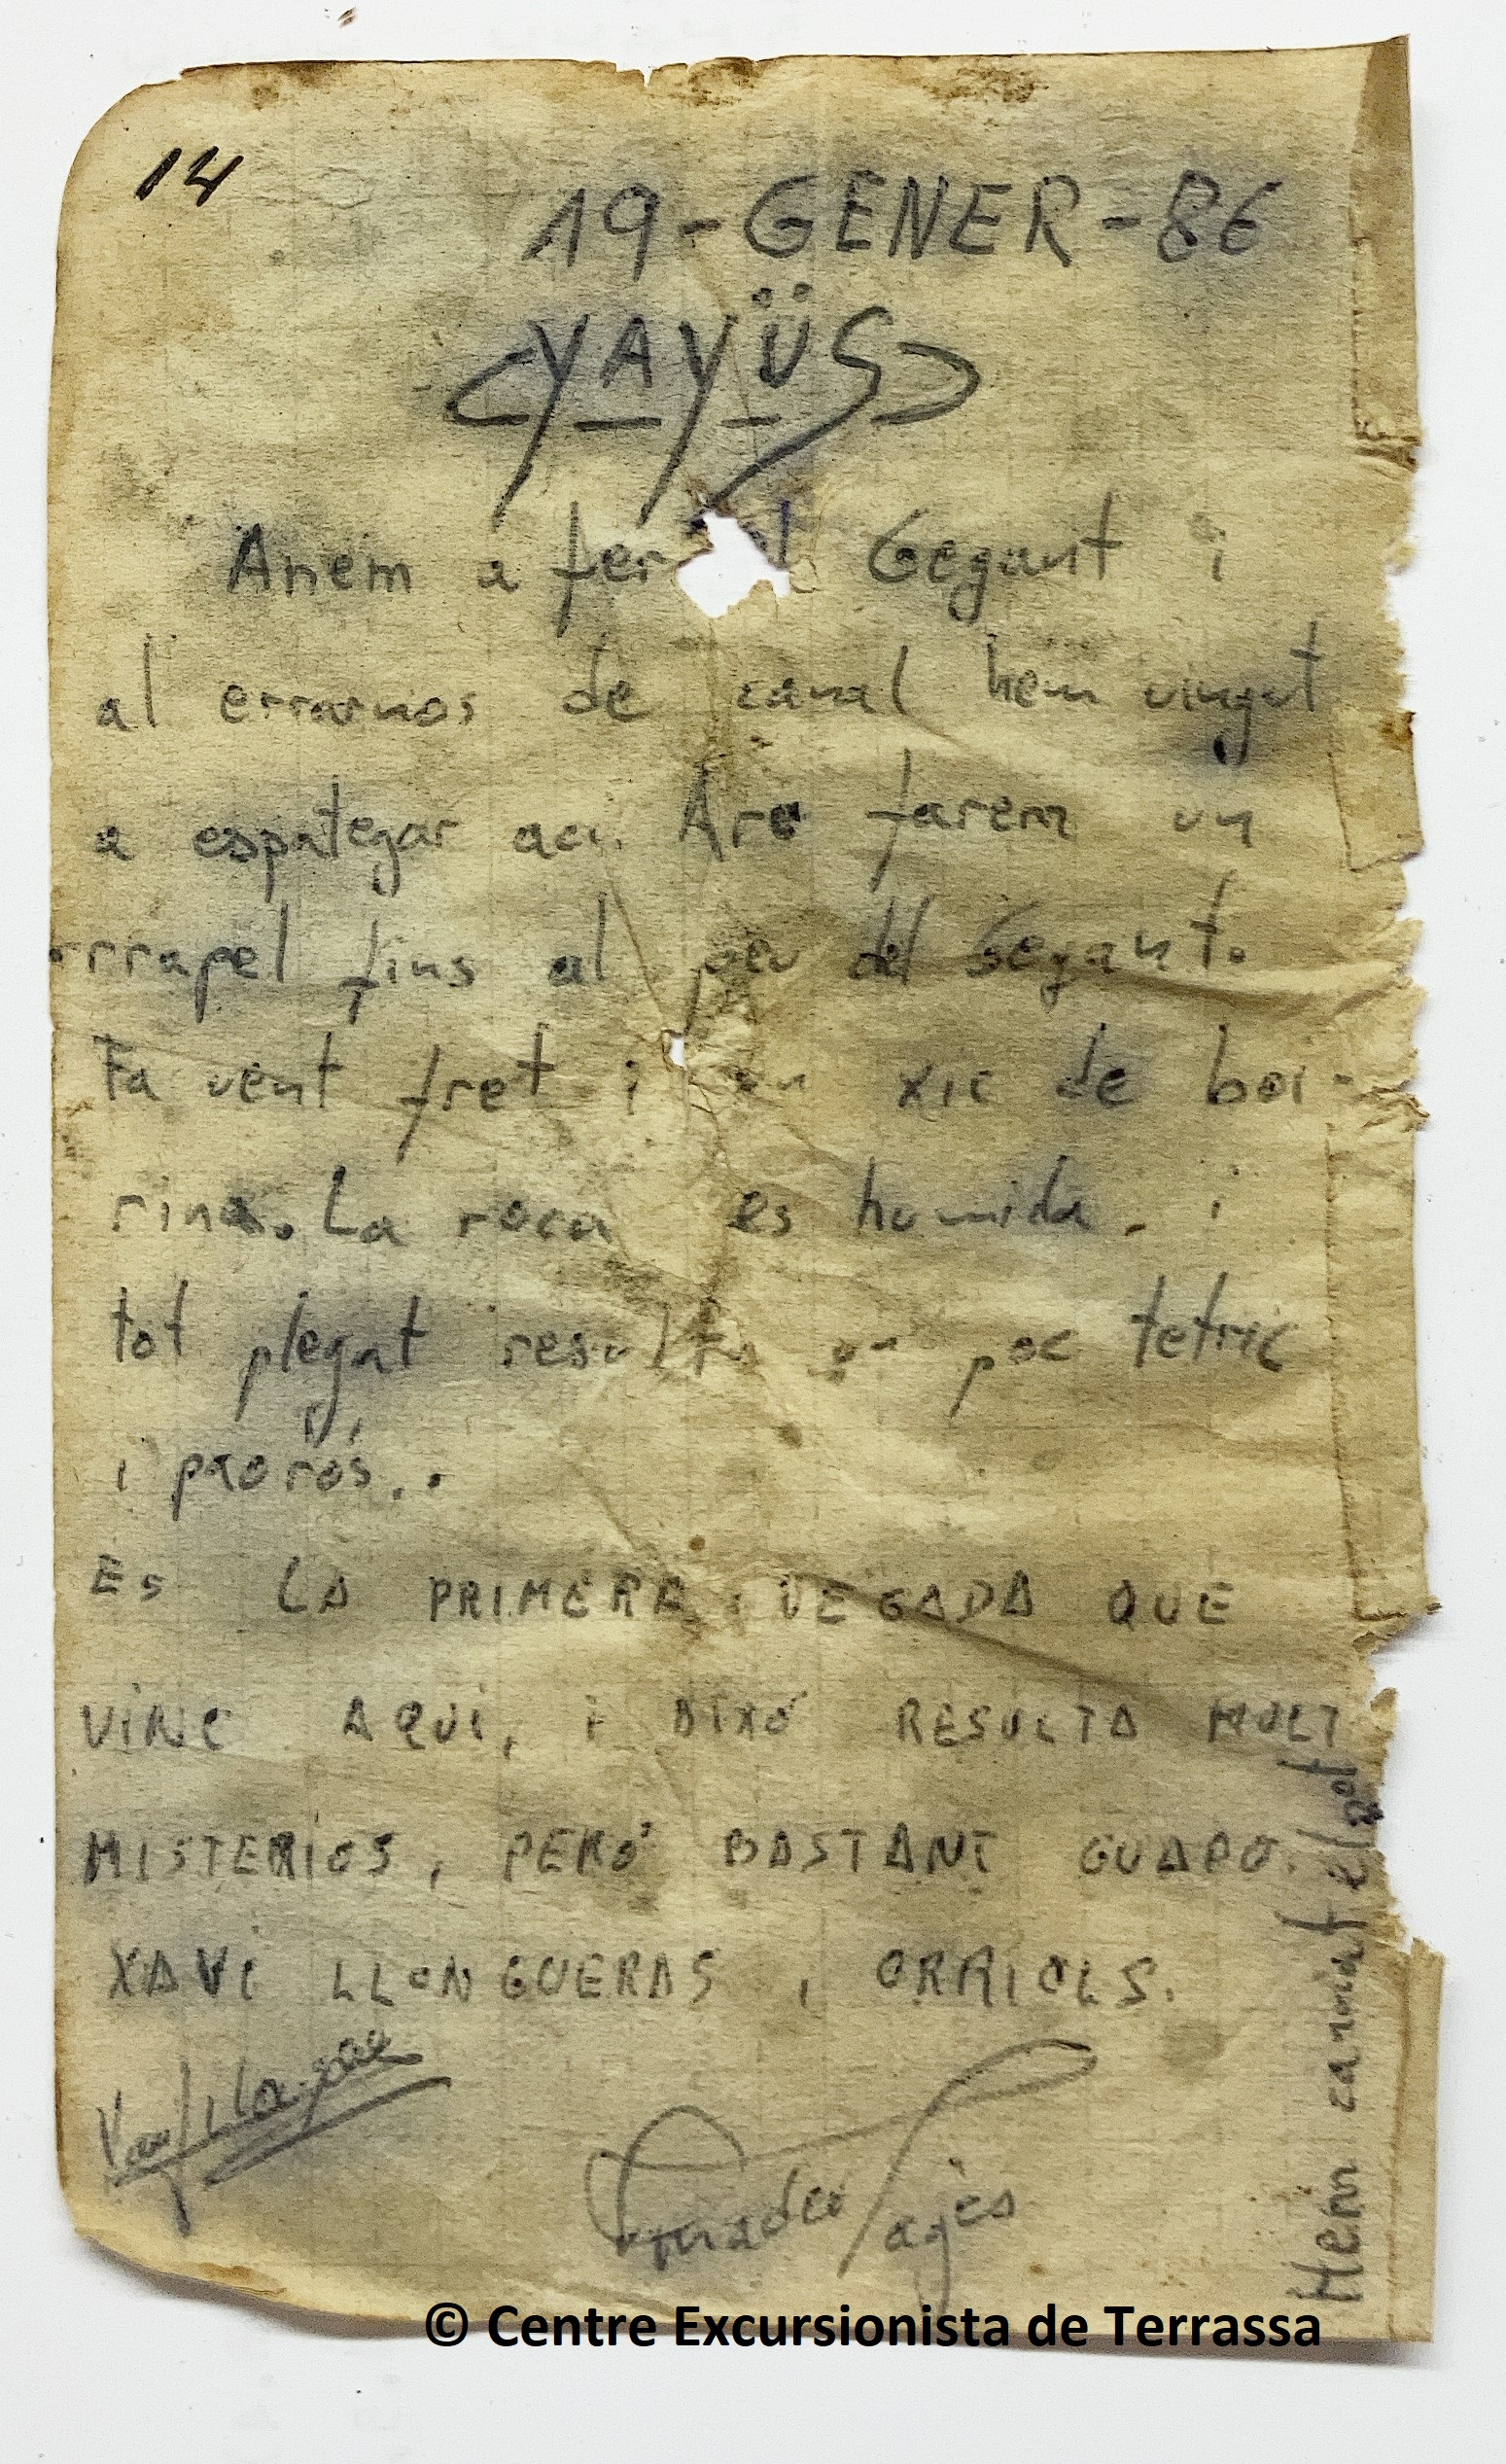 14
19-GENER-86
YAYÜS
Anem a fer Gegant i
al errarnos de canal hem vingut
a espategar aci. Are farem un
rrapel fins al peu del Gegant.
Fa vent fret i un xic de boi-
rina. La roca es humida. i
tot plegat resulta un poc tetric
i paorós..
Es LA PRIMERA VEGADA QUE
ViNC AQUi, i AIXÓ RESULTA MOLT
MISTERIOS, PERÓ BASTANT GUAPO.
XAVi LLONGUERAS i ORRIOLS.
Amadeu Pagès
Hem canviat el pot
© Centre Excursionista de Terrassa